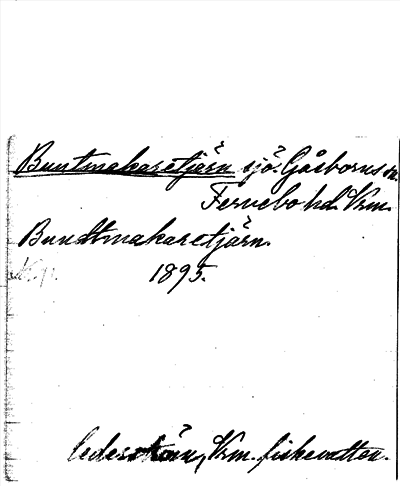 Buntmakaretjärn sjö. Gåsborns sn.
Fernebo hd. Vrm.
Bundtmakaretjärn.
1895.
Vrm. fiskevatten.